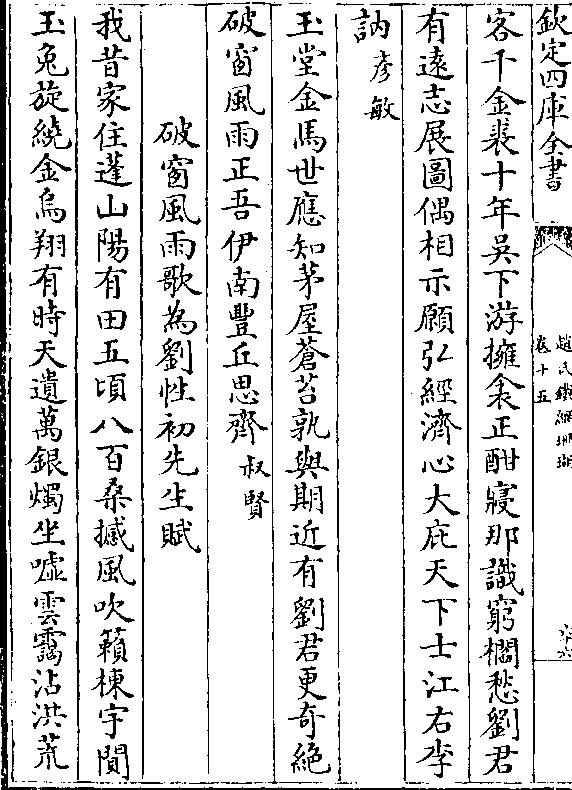 欽定四庫全書
趙氏鐵網珊瑚
卷十五
客千金裘十年吳下游擁衾正酣寢那識窮櫚愁劉君
有遠志展圖偶相示願弘經濟心大庇天下士江右李
訥彥敏
玉堂金馬世應知茅屋蒼苔孰與期近有劉君更奇絶
破窗風雨正吾伊南豐丘思齊叔賢
破窗風雨歌為劉性初先生賦
我昔家住蓬山陽有田五頃八百桑撼風吹籟棟宇間
玉兔旋繞金烏翔有時天遺萬銀燭坐噓雲靄沾洪荒